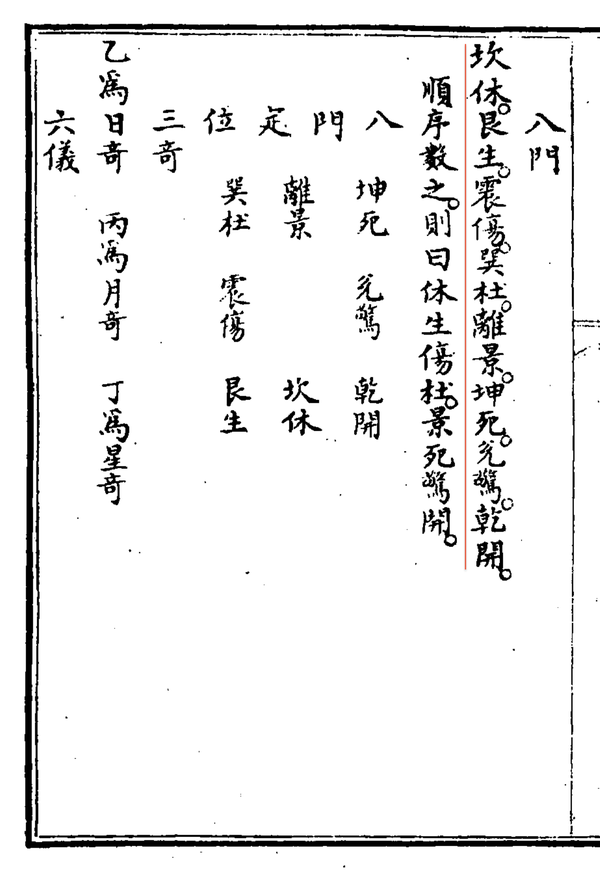 八門
坎休。艮生。震傷。巽杜。離景。坤死。兌驚。乾開。
順序數之。則曰休生傷杜。景死驚開。
八 坤死 兌驚 乾開
門
定 離景 坎休
位 巽杜 震傷 艮生
三奇
乙爲日奇 丙爲月奇 丁爲星奇
六儀